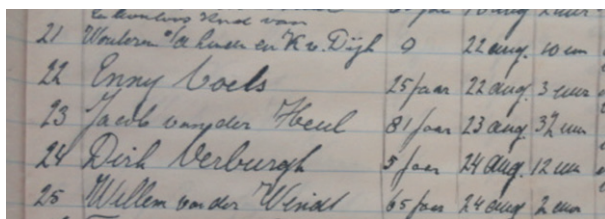 Levenloos Kind van
21 Wouteren v/d Linden en K v. Dijk 0 22 aug. 10 uur
22 Enny Coels 25 jaar 22 aug. 3 uur
23 Jacob van der Heul 81 jaar 23 aug. 3½ uur
24 Dirk Verburgh 5 jaar 24 aug. 12 uur
25 Willem van der Windt 65 jaar 24 aug. 2 uur